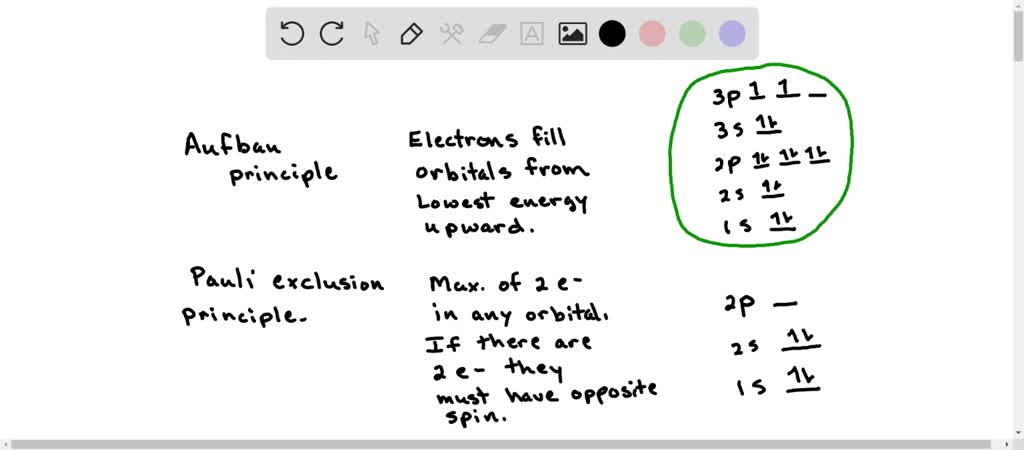 A
Aufbau principle
Electrons fill
orbitals from
Lowest energy
upward.
3p 1 1 _
3s 1↓
2p 1↓ 1↓ 1↓
2s 1↓
1s 1↓
Pauli exclusion
principle.
Max. of 2 e-
in any orbital.
If there are
2 e- they
must have opposite
spin.
2p _
2s 1↓
1s 1↓